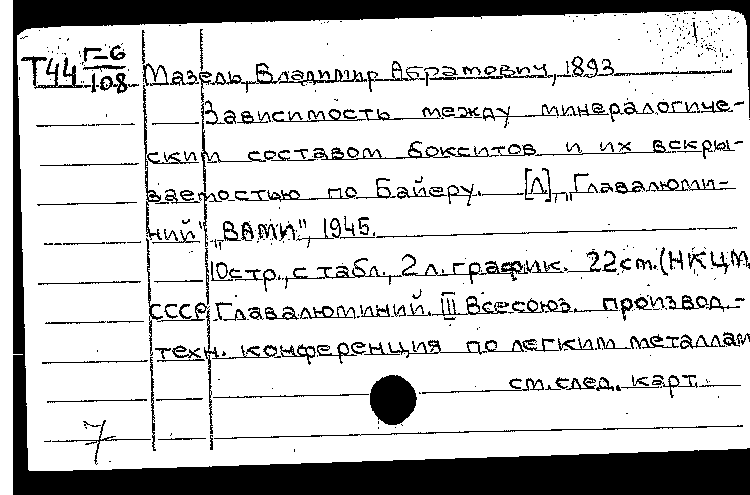 Т44 Г-6/108 Мазель, Владимир Абрамович, 1893
Зависимость между минералогиче-
ским составом бокситов и их вскры-
ваемостью по Байеру. [Л], „Главалюми-
ний" „ВАМИ", 1945.
10стр., с табл., 2 л. график. 22см. (НКЦМ
СССР Главалюминий. III Всесоюз. производ.-
техн. конференция по легким металлам
см. след. карт.
7